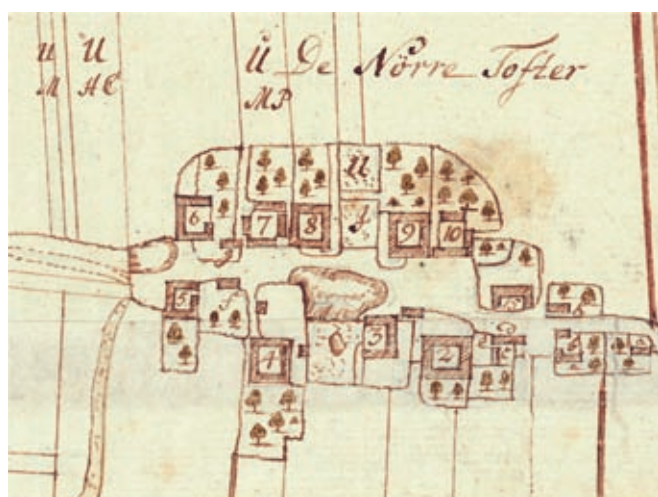 U U U De Nörre Tofter
M HC MP
U
6 7 8 9 10
5
4 3 2